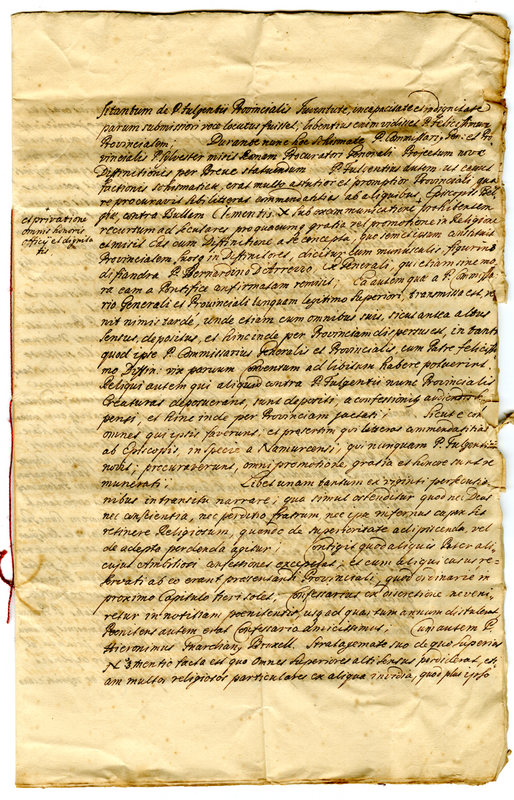 si tantum de P. Fulgentii Provincialis Juventute, incapacitate et indignitate
parum submissiori voce locutus fuisset, libentius enim vidisset P. Felicissimum
Provincialem; Durante nunc hoc schismate P. Commissari
vincialis P. Sylvester misit Romam Procuratori Generali Projectum novae
Definitionis per Breve statuendum P. Fulgentius autem ut caput
factionis schismaticae, erat multo astutior et promptior Provinciali, qua
re procuravit sibi litteras commendatitias ab aliquibus Episcopis
contra Bullam Clementis X sub excommunicatione prohibentem
et privatione
omnis honoris
officii et dignita
tis
recursum ad seculares pro quacunq gratia vel promotione in Religione
et misit eas cum Definitione a se concepta, quo semetipsum constituit
Provincialem, suosq in Definitores, dictus cum mundialis, figurino
di fiandra P. Bernardino D'Arezzo ex Generali, qui etiam sine mo
ra eam a Pontifice confirmatam remisit; Ea autem quae a P. Commissa
rio Generali et Provinciali tunquam legitimo Superiori, transmissa est, ve
nit nimis tarde, unde etiam cum omnibus suis, sicut antea altus
sensus, depositus, et hinc inde per Provinciam dispersus est, in tantum
quod ipse P. Commissarius Generalis et Provincialis, cum Patre felicissi
mo Diffin: vix parvum Conventum ad libitum habere potuerint.
Reliqui autem qui aliquid contra P. Fulgentii nunc Provincialis
Creaturas deposuerunt, sunt depositi, a confessionibus
pensi, et hinc inde per Provinciam jactati; Sicut e con
omnes qui ipsis faverunt, et praesertim qui litteras commendatitias
ab Episcopis, in specie a Namurcensi, qui nunquam P. Fulgenti
novit; procuraverunt, omni promotione, gratia et honore sunt re
munerati; Libet unam tantum ex ripinti persecutio
nibus in transitu narrare; qua simul ostenditur quod nec Deus
nec conscientia, nec perditio fratrum nec ipse infernus capax sit
retinere Religiosum, quando de superioritate adipiscenda, vel
de adepta perdenda agitur; Contigit quod aliquis Pater ali
cujus confessiones exceperit, et cum aliqui casus re
servati ab eo erant praesentanti Provinciali, quod ordinarie in
proximo Capitulo fieri solet, Confessarius ex discretione ne veni
retur in notitiam poenitentis, usq ad quartum annum distulerat
Poenitens autem erat Confessario amicissimus; Cum autem P.
Hieronimus Marchian, Bruxell. Stratagemate suo de quo superius
N. 3 mentio facta est quo omnes superiores altiusensus perdiderat, et
am multos religiosos particulares ex aliqua invidia, quod plus ipso